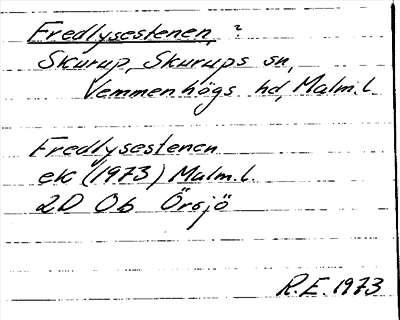 Fredlysestenen, ?
Skurup, Skurups sn,
Vemmenhögs hd, Malm.l
Fredlysestenen
ek (1973) Malm.l.
2D Ob Örsjö
R.E. 1973